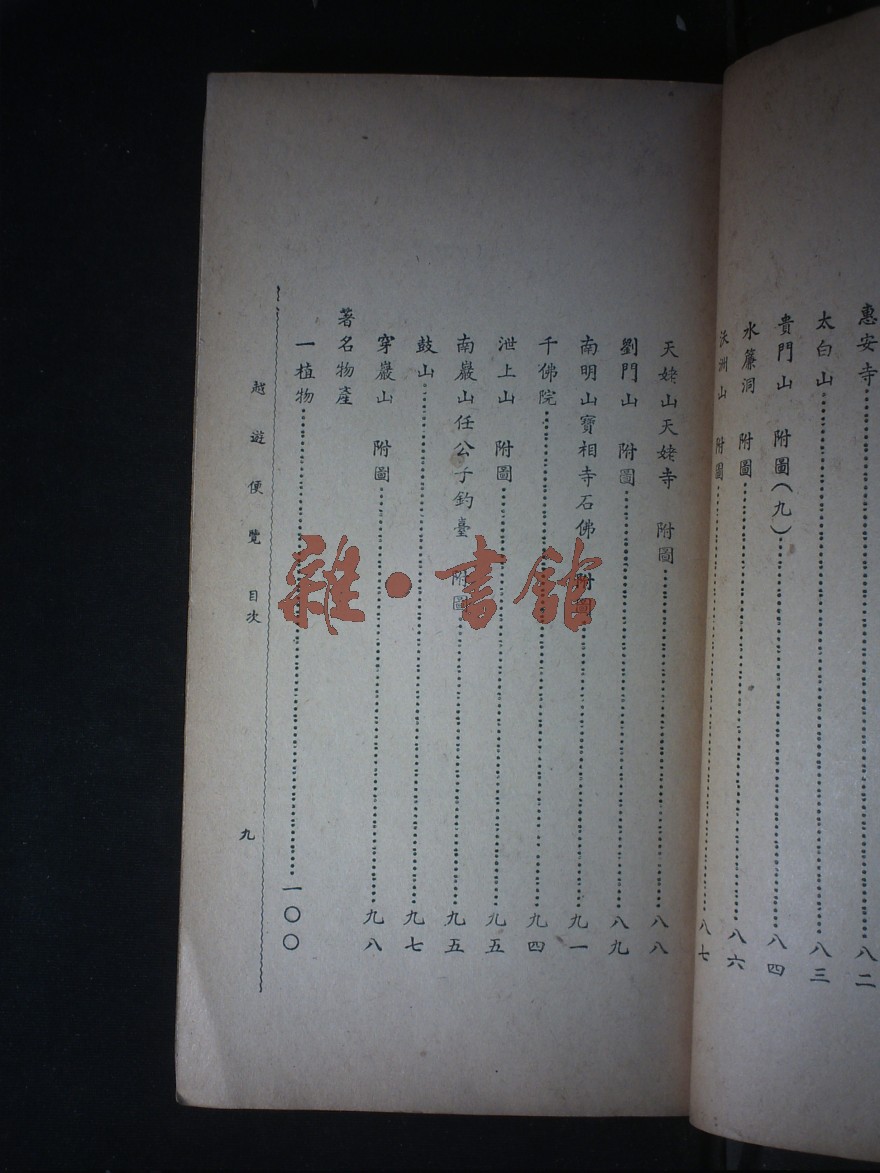 惠安寺……八二
太白山……八三
貴門山 附圖(九)……八四
水簾洞 附圖……八六
沃洲山 附圖……八七
天姥山天姥寺 附圖……八八
劉門山 附圖……八九
南明山寶相寺石佛 附圖……九一
千佛院……九四
泄上山 附圖……九五
南巖山任公子釣臺 附圖……九五
鼓山……九七
穿巖山 附圖……九八
著名物產
一植物……一〇〇
越遊便覽 目次
九
雜·書館